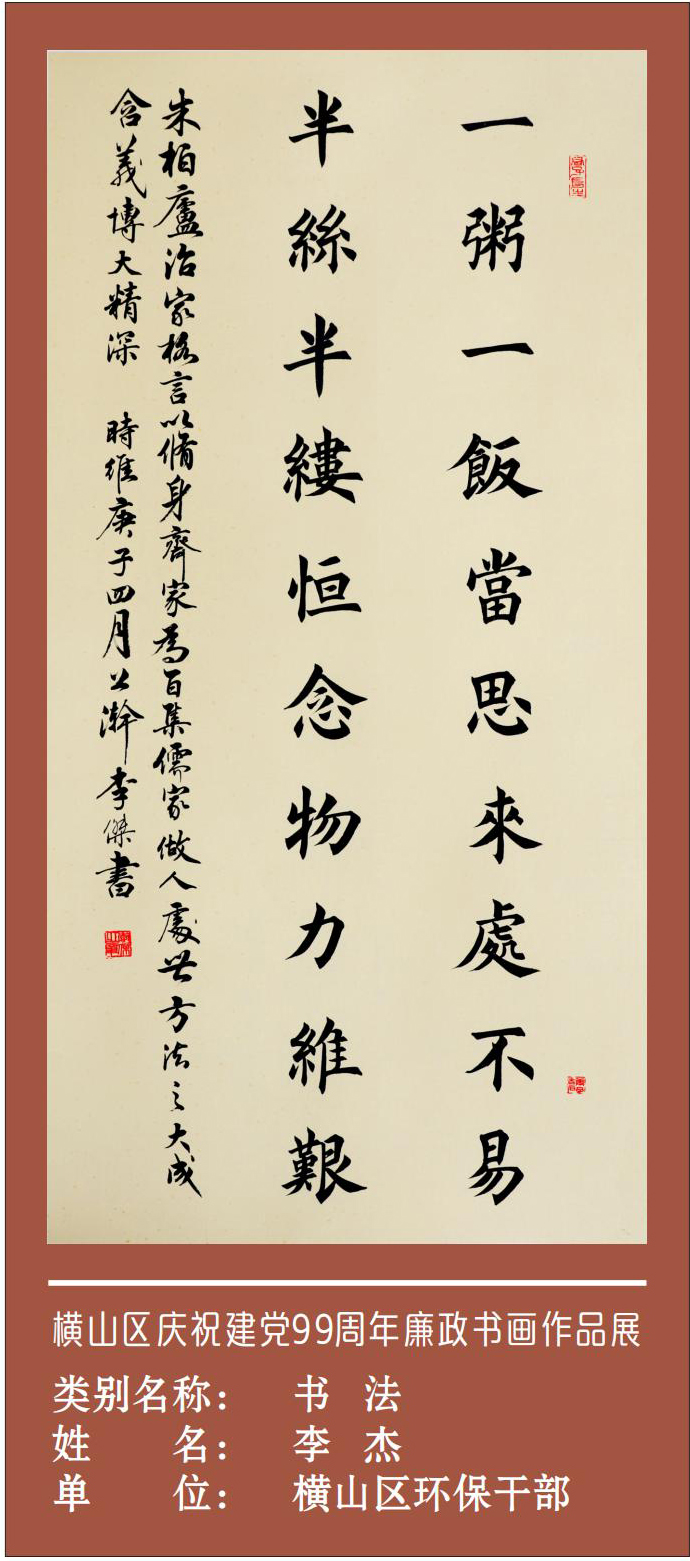 一粥一飯當思來處不易
半絲半縷恒念物力維艱
朱柏廬治家格言以脩身齊家為百集儒家做人處世方法之大成
含義博大精深 時維庚子四月 李傑書
横山区庆祝建党99周年廉政书画作品展
类别名称: 书 法
姓 名: 李 杰
单 位: 横山区环保干部